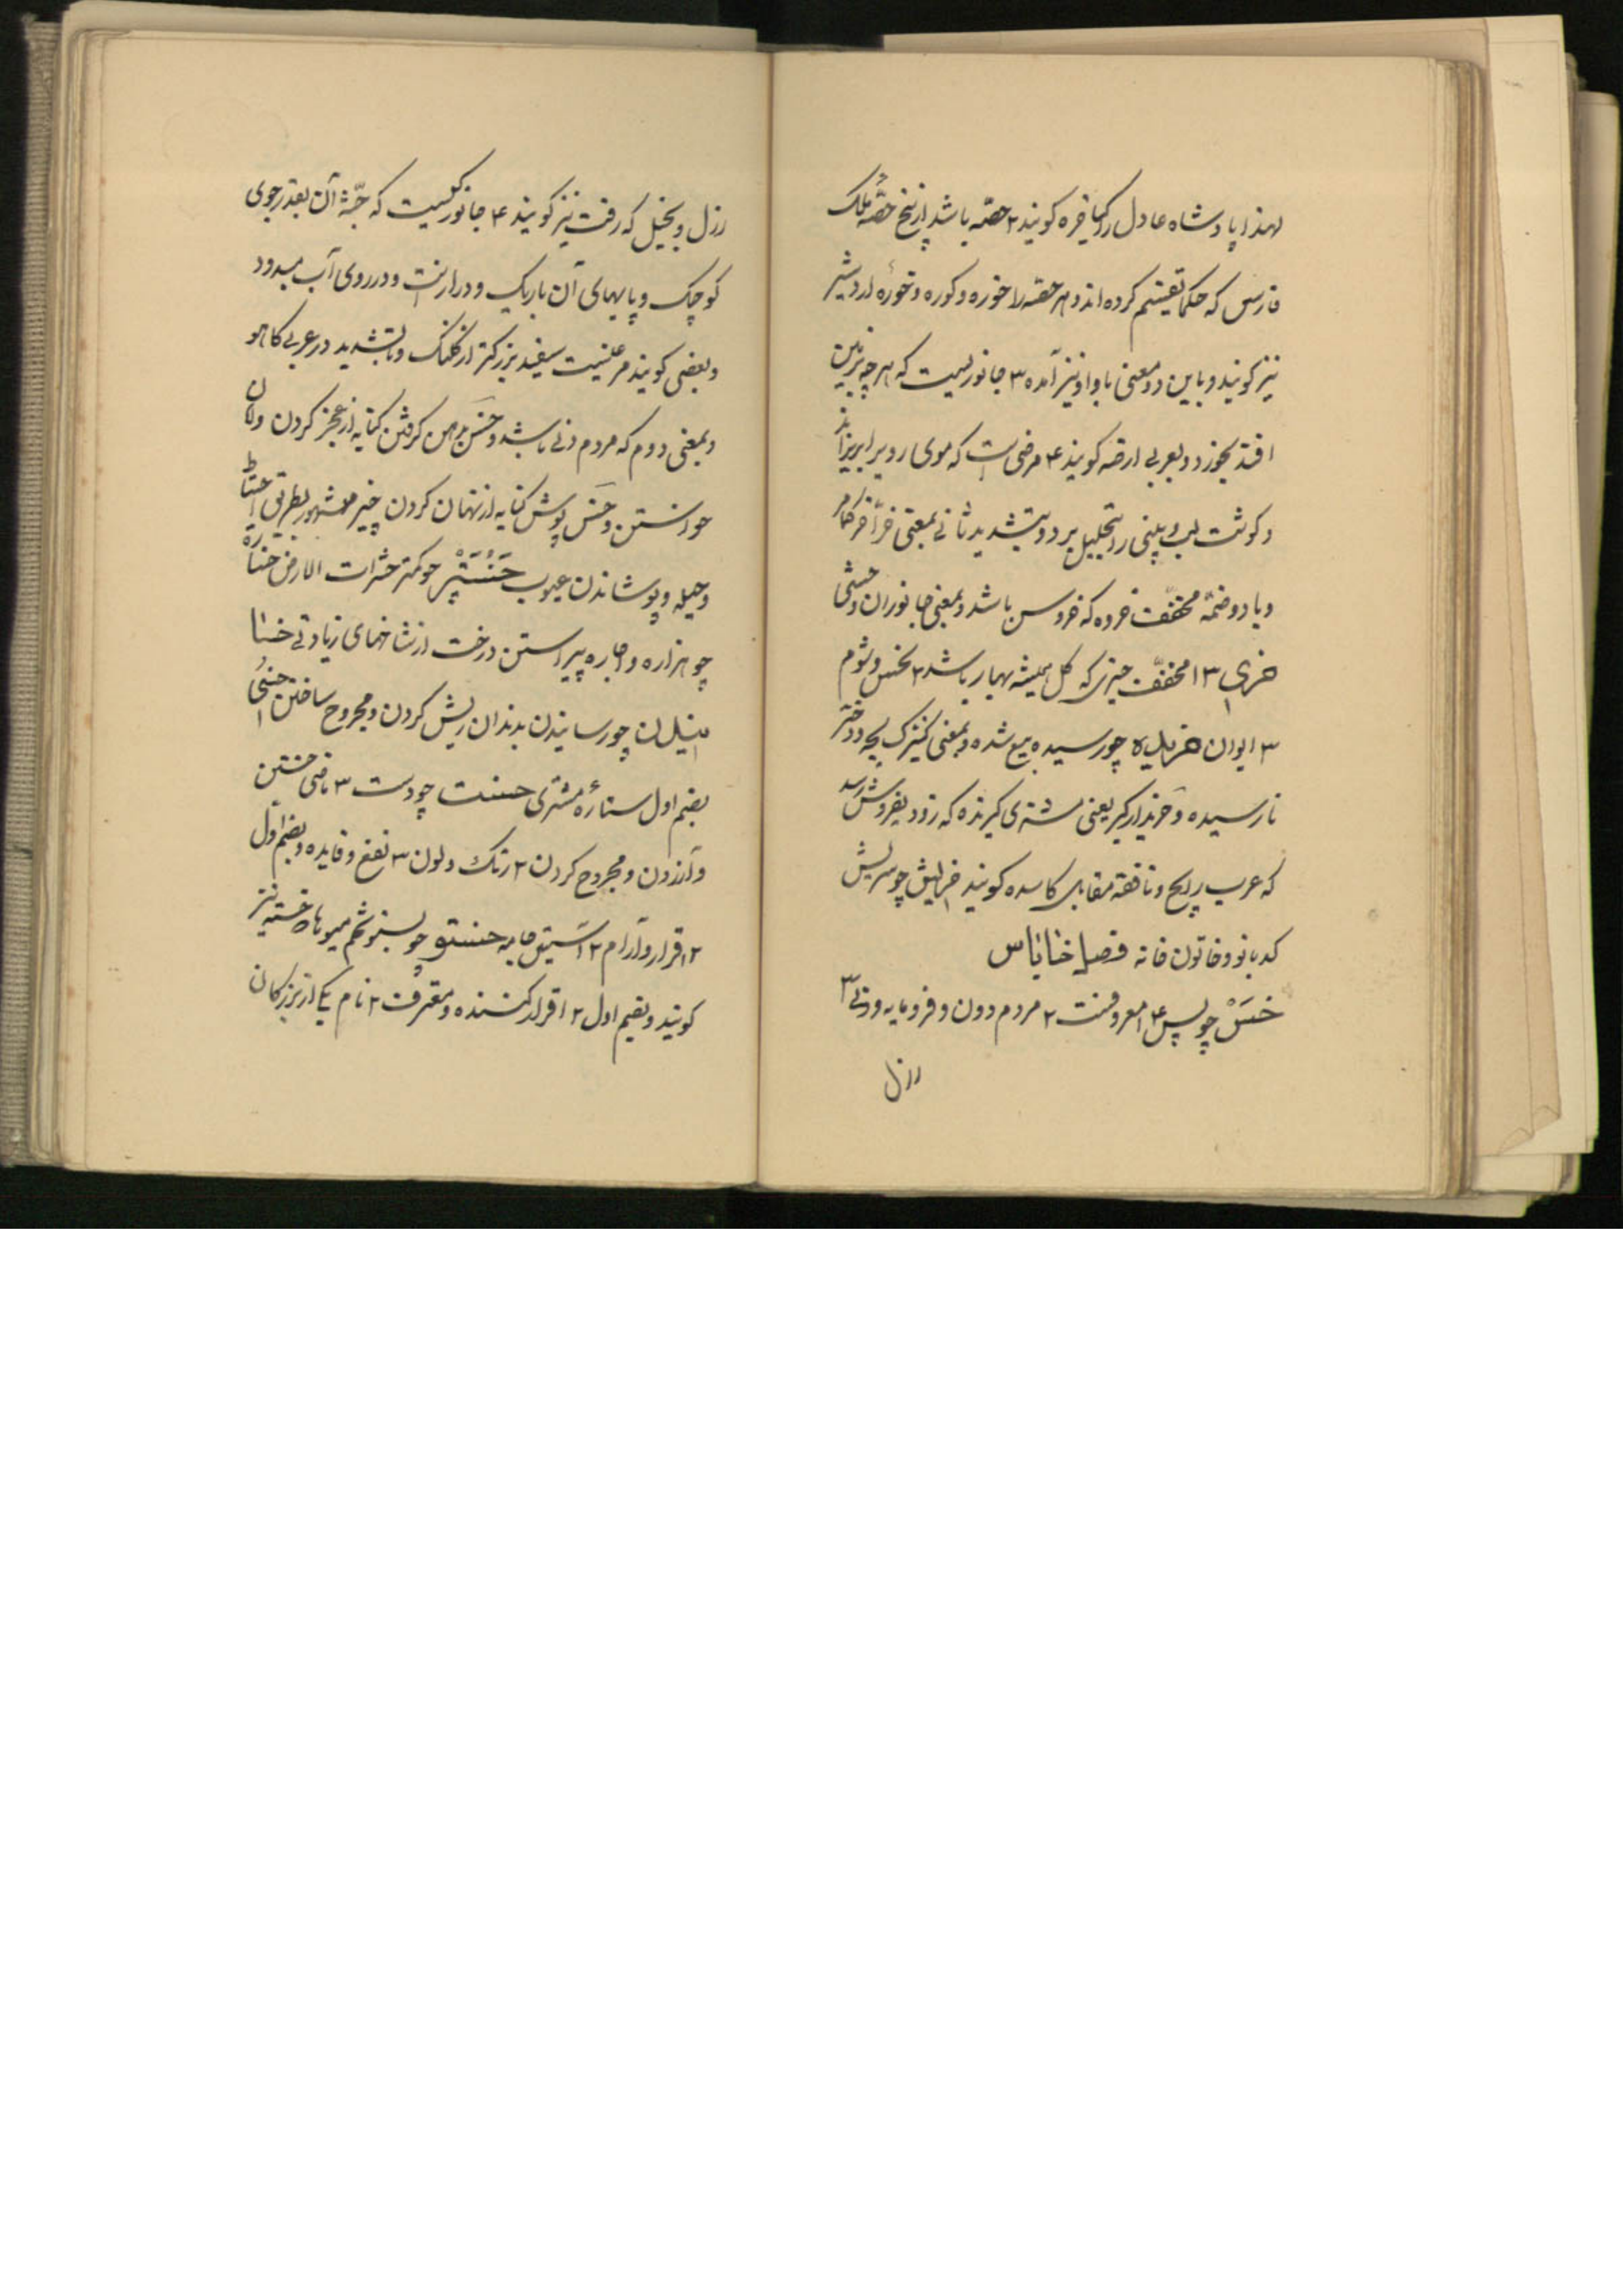 لهذا پادشاه عادل را کیاخره کویند ۲ حصّه باشد از پنج حصّه ملک
فارس که حکما تقسیم کرده اند و هر حصّه را خوره و کوره و خورهٔ اردشیر
نیز کویند و باین دو معنی با واو نیز آمده ۳ جانوریست که هر چه بزمین
افتد بخورد و بعربی ارضه کویند ۴ مرضی است که موی را بریزاند
و کوشت لب و بینی را تحلیل برد و بتشدید ثانی بمعنی
و با دو ضمّه مخفّف خروه که خروس باشد و بمعنی جانوران وحشی
خری ۳ ا مخفّف خیری که کل همیشه بهار باشد ۲ نحس و شوم
۳ ایوان خریده چو رسیده بیع شده و بمعنی کنیزک بچه و دختر
نارسیده و خریدارکیر یعنی مشتری کیرنده که زود بفروش رسد
که عرب رایج و نافقه مقابل کاسده کویند خرایش چو سرایش
کدبانو و خاتون خانه فصل خا با س
خَسْ چو بس ۴ ا معروفست ۲ مردم دون و فرومایه و دنی ۳
رذل
رذل و بخیل که رفت نیز کویند ۴ جانورکیست که جثّه آن بقدر جوی
کوچک و پایهای آن باریک و دراز است و در روی آب میدود
و بعضی کویند مرغیست سفید بزرکتر از کلنک و بتشدید در عربی کاهو
و بمعنی دوم که مردم دنی باشد و خس بدهن کرفتن کنایه از عجز کردن و امان
خواستن و خس پوش کنایه از پنهان کردن چیز مشهور بطریق احتیاط
و حیله و پوشاندن عیوب خَسَتَر چو کمتر حشرات الارض خساره
چو هزاره و اجاره پیراستن درخت از شاخهای زیادتی خسا
انیدن چو رسانیدن بدندان ریش کردن و مجروح ساختن
بضم اول ستارهٔ مشتری خست چو دست ۳ ماضی خستن
و آزردن و مجروح کردن ۲ رنک و لون ۳ نفع و فایده و بضم اول
۲ ا قرار و آرام ۲ آستین جامه خستو چو بستو تخم میوها و خسته نیز
کویند و بضم اول ۲ ا اقرار کننده و معترفست ۲ نام یکی از بزرکان